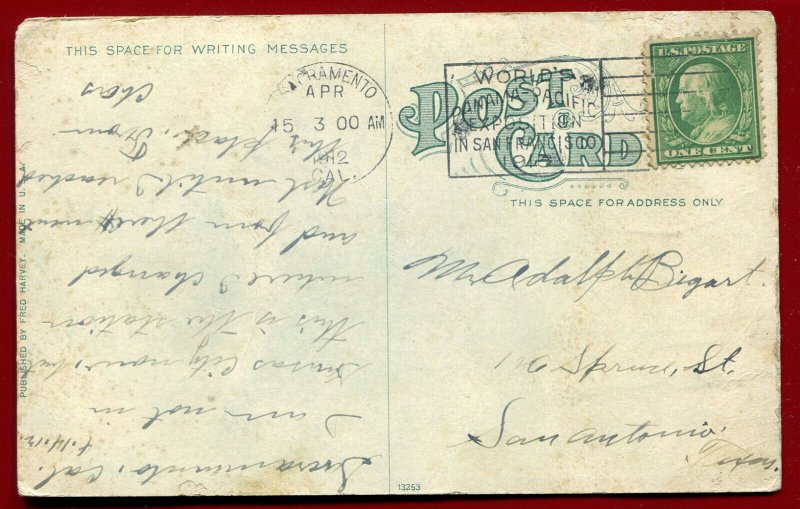 THIS SPACE FOR WRITING MESSAGES
Sacramento, Cal.
4.14.12.
I am not in
Kansas City now, but
this is the station
where I changed
and from there went
West until I reached
this place. From
Chas
PUBLISHED BY FRED HARVEY. MADE IN U.S.A.
SACRAMENTO
APR
15 3 00 AM
1912
CAL.
WORLD'S
PANAMA-PACIFIC
EXPOSITION
IN SAN FRANCISCO
1915
POST
CARD
U.S. POSTAGE
ONE CENT
THIS SPACE FOR ADDRESS ONLY
Mr. Adolph Bigart.
Spruce, St.
San Antonio,
Texas.
13253